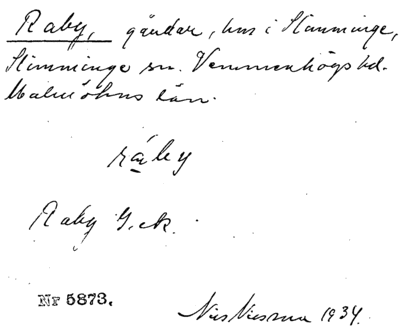 Raby, gårdar, hus i Slimminge,
Slimminge sn. Vemmenhögs hd.
Malmöhus län.
råby
Raby G. ek.
Nr 5873.
Nils 1934.